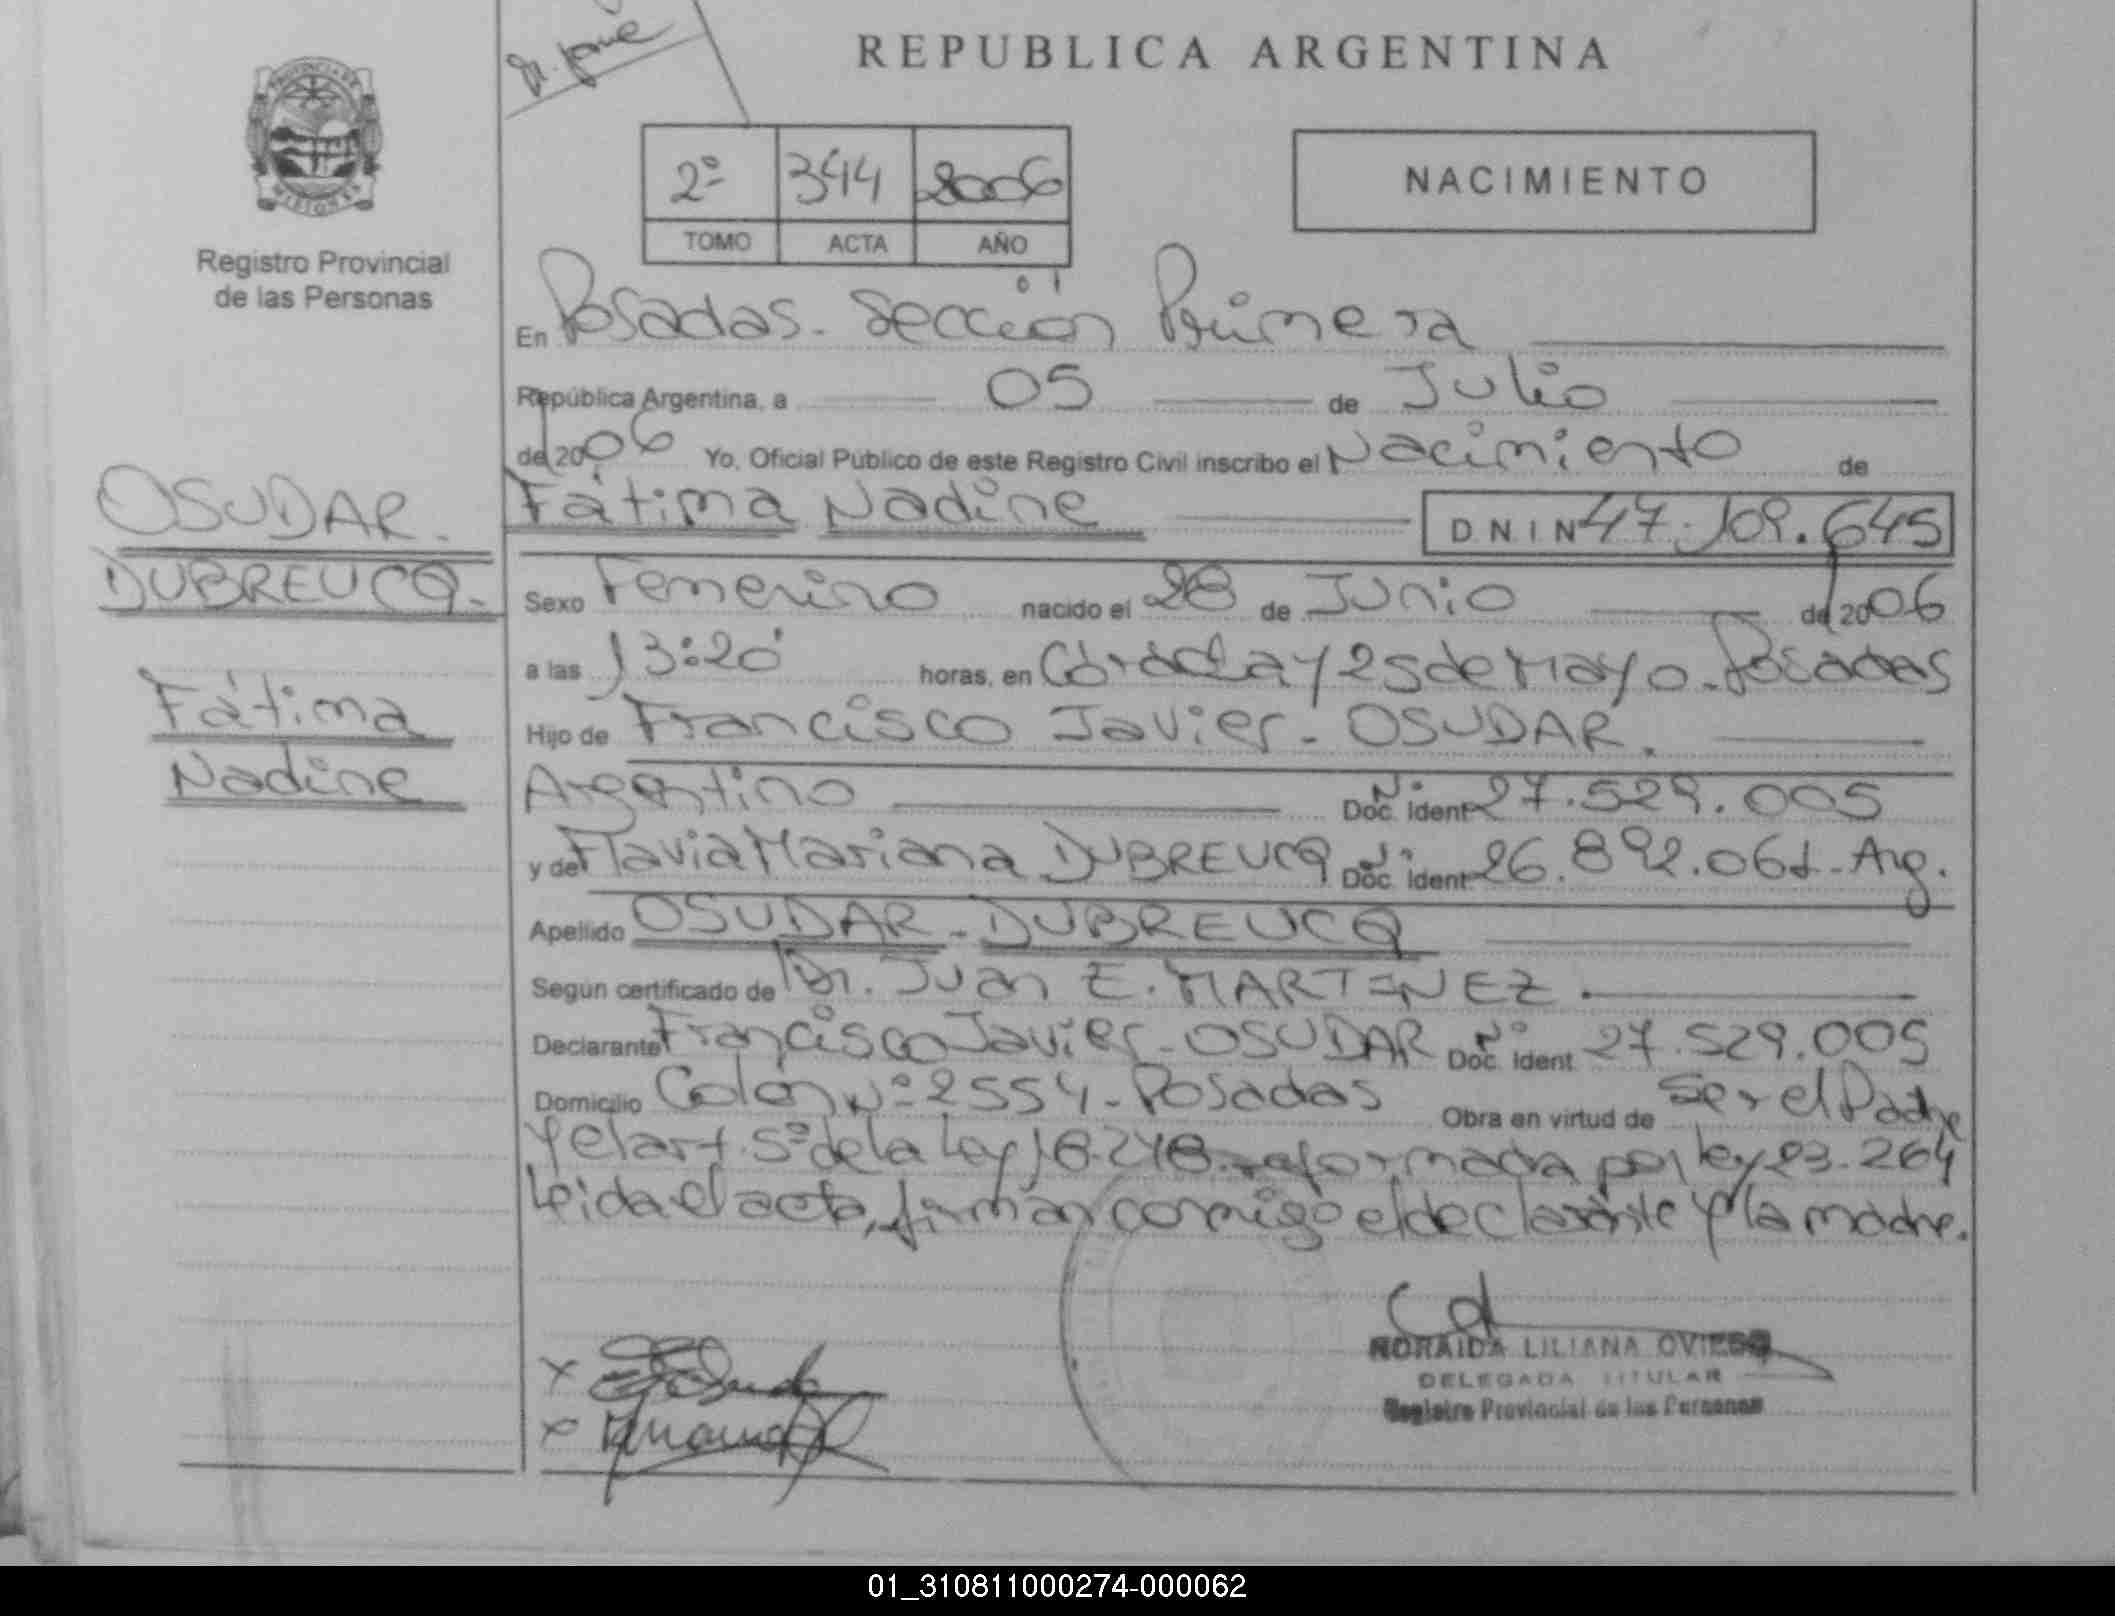 REPUBLICA ARGENTINA
PROVINCIA DE
MISIONES
Registro Provincial
de las Personas
2º 344 2006
TOMO ACTA AÑO
NACIMIENTO
En Posadas - Sección Primera
República Argentina, a 05 de Julio
de 2006 Yo, Oficial Público de este Registro Civil inscribo el Nacimiento de
Fátima Nadine D N I N 47.109.645
OSUDAR
DUBREUCQ.-
Fátima
Nadine
Sexo Femenino nacido el 28 de Junio de 2006
a las 13:20 horas, en Córdoba y 25 de Mayo - Posadas
Hijo de Francisco Javier - OSUDAR.
Argentino Doc. Ident Nº 27.529.005
y de Flavia Mariana DUBREUCQ Doc. Ident Nº 26.892.061 - Arg.
Apellido OSUDAR - DUBREUCQ
Según certificado de Dr. Juan E. MARTINEZ.
Declarante Francisco Javier - OSUDAR Doc. Ident Nº 27.529.005
Domicilio Colón Nº 2554 - Posadas Obra en virtud de Ser el Padre
y el art. 5º de la Ley 18.248 - reformada por ley 23.264
Leida el acta, firman conmigo el declarante y la madre.
NORAIDA LILIANA OVIEDO
DELEGADA TITULAR
Registro Provincial de las Personas
01_310811000274-000062